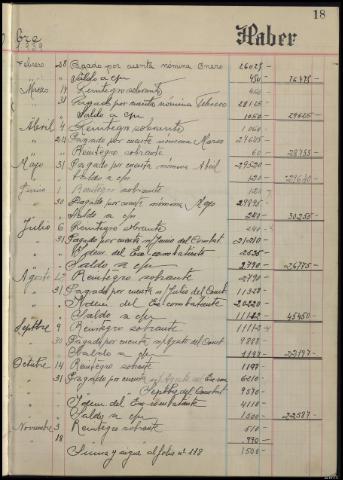 18
bre
1939
Haber
Febrero 28 Pagado por cuenta nómina Enero 26025 -
" " Saldo a c/n 450 - 26475 -
Marzo 14 Reintegro sobrante 450 -
" 31 Pagado por cuenta nómina Febrero 28125 -
" Saldo a c/n 1050 - 29625 -
Abril 4 Reintegro sobrante 1060 -
" 24 Pagado por cuenta nómina Marzo 27685 -
" " Reintegro sobrante 60 - 28755 -
Mayo 31 Pagado por cuenta nómina Abril 29520 -
" " Saldo a c/n 120 - 29640 -
Junio 1 Reintegro sobrante 120 -
" 30 Pagado por cuenta nómina Mayo 29895 -
" " Saldo a c/n 240 - 30255 -
Julio 6 Reintegro sobrante 240 -
" 31 Pagado por cuenta n/ Junio del Combat
" " Idem del Ex-combatiente
" " Saldo a c/n 2790 - 26775 -
Agosto Reintegro sobrante 2790 -
" 31 Pagado por cuenta n/ Julio del Comb 11328 -
" " Idem del Ex-combatiente 20220 -
" " Saldo a c/n 11112 - 45450 -
Septbre 9 Reintegro sobrante 11112 -
" 30 Pagado por cuenta n/Agosto del Combat 9888 -
" " Saldo a c/n 1197 - 22197 -
Octubre 14 Reintegro sobrante 1197 -
" 31 Pagado por cuenta 6210 -
" " Septbre del Combat 9570 -
" " Idem del Ex-combatiente 4110 -
" " Saldo a c/n 1500 - 22587 -
Noviembre 3 Reintegro sobrante 510 -
" 18 " 990 -
Suma y sigue al folio nº 118 1500 -